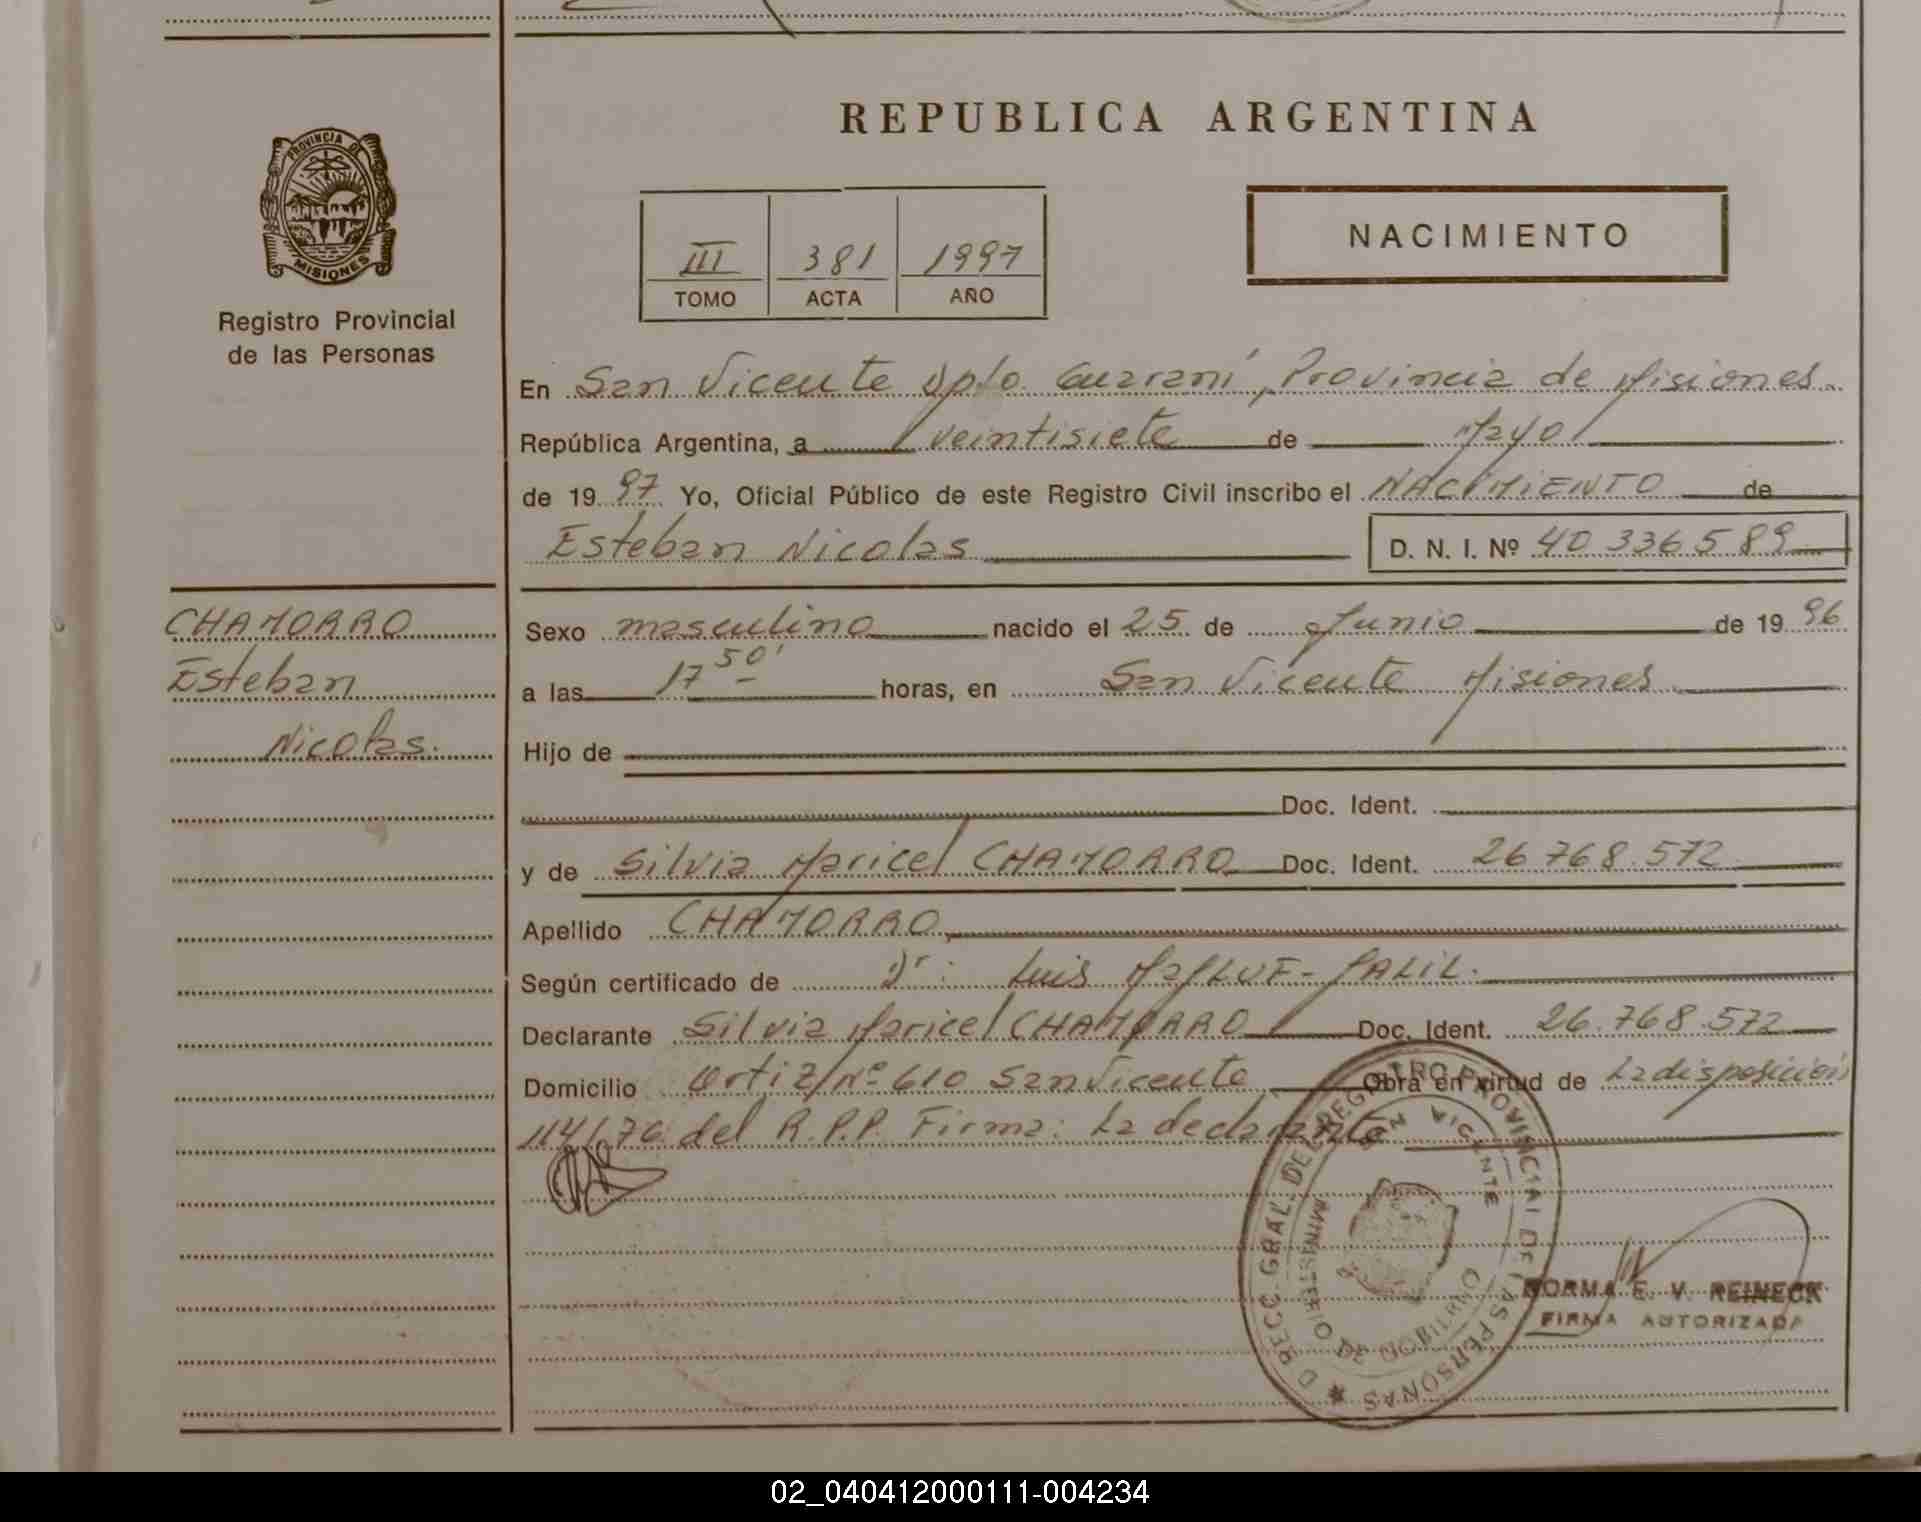 REPUBLICA ARGENTINA
PROVINCIA DE
MISIONES
Registro Provincial
de las Personas
III 381 1997
TOMO ACTA AÑO
NACIMIENTO
En San Vicente Dpto. Guaraní, Provincia de Misiones
República Argentina, a veintisiete de Mayo
de 1997 Yo, Oficial Público de este Registro Civil inscribo el NACIMIENTO de
Esteban Nicolas D. N. I. Nº 40 336 589
CHAMORRO
Esteban
Nicolas.
Sexo masculino nacido el 25 de Junio de 1996
a las 17 50' horas, en San Vicente Misiones
Hijo de
Doc. Ident.
y de Silvia Maricel CHAMORRO Doc. Ident. 26 768.572
Apellido CHAMORRO
Según certificado de Dr: Luis
Declarante Silvia Maricel CHAMORRO Doc. Ident. 26.768.572
Domicilio Ortiz Nº 610 San Vicente Obra en virtud de La disposición
114/76 del R.P.P. Firma: La declarante
DIRECC. GRAL. DEL REGISTRO PROVINCIAL DE LAS PERSONAS
SAN VICENTE
MINISTERIO DE GOBIERNO
NORMA E. V. REINECK
FIRMA AUTORIZADA
02_040412000111-004234